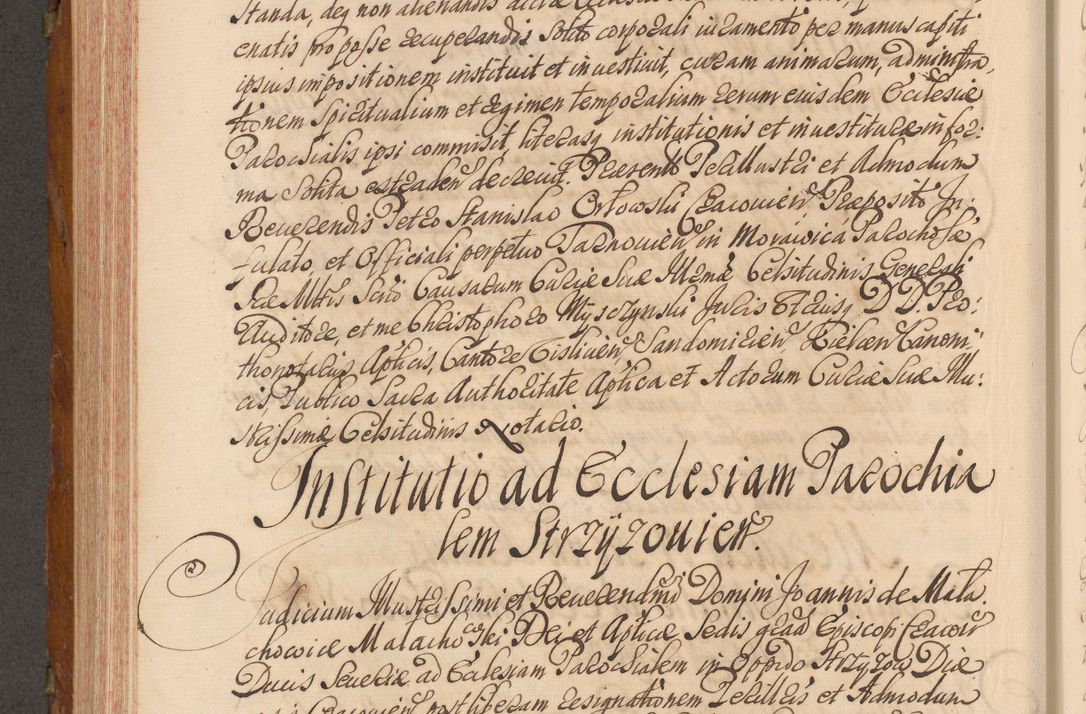 standa, deq non alienandis
enatis pro posse recuperandis solito corporali iuramento per manus capiti
ipsius impositionem instituit et investivit, curam animarum, administra,
tionem Spiritualium et regimen temporalium rerum eiusdem Ecclesiæ
Parochialis ipsi commisit, literasq institutionis et investituræ in for:
ma Solita extraden decrevit. Præsentb Perillustri et Admodum
Reverendis Petro Stanislao Orłowski Cracovien Præposito In:
fulato, et Officiali perpetuo Tarnovien in Morawica Parochosæ
suæ Mttis Scrio Causarum Curiæ Suæ Illmæ Celsitudinis Generali
Auditore, et me Christophoro Myszczynski Juris Utriusq D. D. Pro:
thonotariis Aplicis, Cantore Visliciens, Sandomirien Kielcen Canoni:
cis, Publico Sacra Authoritate Aplica et Actorum Curiæ Suæ Illu:
strissimæ Celsitudinis Notario.
Institutio ad Ecclesiam Parochia
lem Strzÿzovien.
Judicium Illustrissimi et Reverendmi Domini Joannis de Mała
chowice Małachowski Dei et Aplicæ Sedis grad Episcopi Cracovien
Ducis Severiæ ad Ecclesiam Parochialem in Oppido Strzyzow Diæ
Cracovien post liberam resignationem Perillris et Admodum